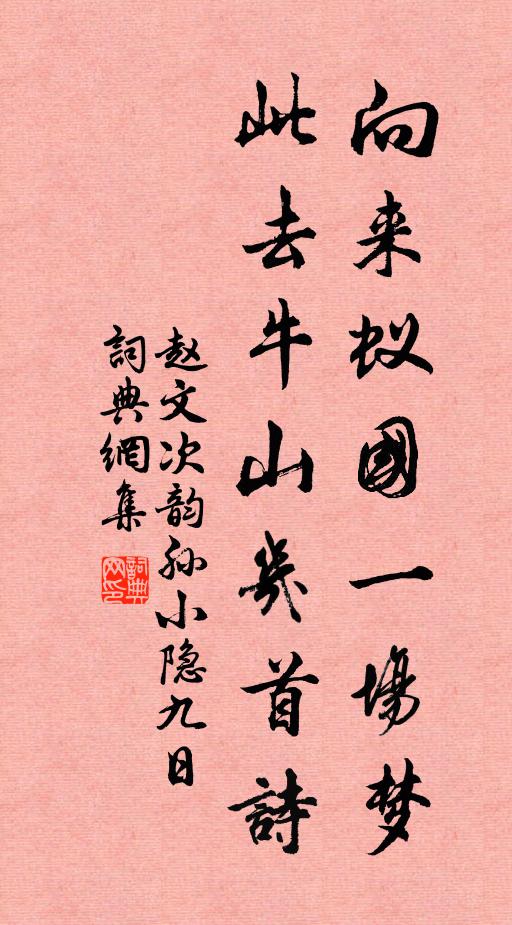 向来蚁國一場梦
此去牛山幾首詩
赵文次韵孙小隐九日
詞典網集
詞典网印